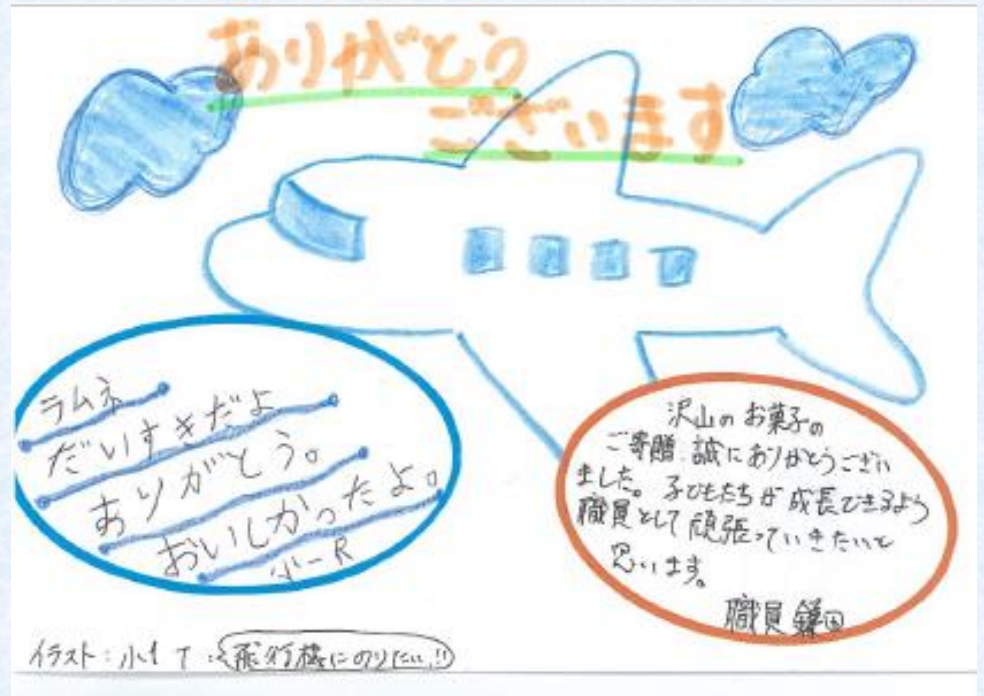 ありがとう
ございます
ラムネ
だいすきだよ
ありがとう。
おいしかったよ。
小一R
沢山のお菓子の
ご寄贈、誠にありがとうござい
ました。子どもたちが成長できるよう
職員として頑張っていきたいと
思います。
職員 鎌田
イラスト：小1 T：飛行機にのりたい!!